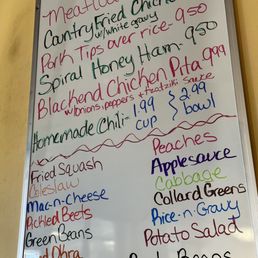 Meatloa
Country Fried Chicke
w/white gravy
Pork Tips over rice - 9.50
Spiral Honey Ham - 9.50
Blackend Chicken Pita 9.99
w/onions, peppers + tzatziki sauce
Homemade Chili - 1.99 cup 2.99 bowl
Fried Squash
Coleslaw
Mac-n-Cheese
Pickled Beets
Green Beans
Okra
Peaches
Applesauce
Cabbage
Collard Greens
Rice-n-Gravy
Potato Salad